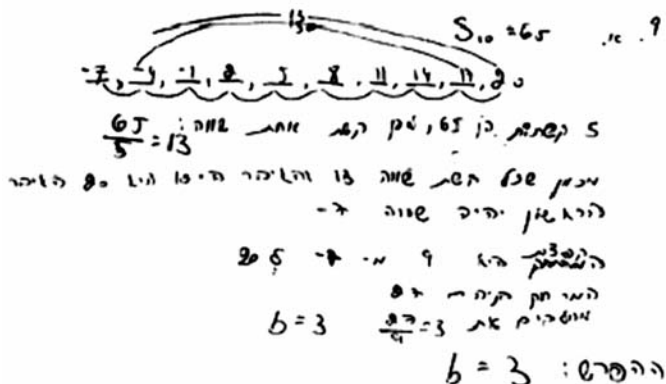 9. א. S₁₀ = 65
13
-7, -4, -1, 2, 5, 8, 11, 14, 17, 20
5 קשתות הן 65, לכן קשת אחת שווה: 65/5 = 13
מכיוון שכל קשת שווה 13 והאיבר ה-10 הוא 20 האיבר
הראשון יהיה שווה -7
היא 9 מ- -7 ל 20
המרחק הוא 27
את 27/9 = 3 b = 3
ההפרש: b = 3